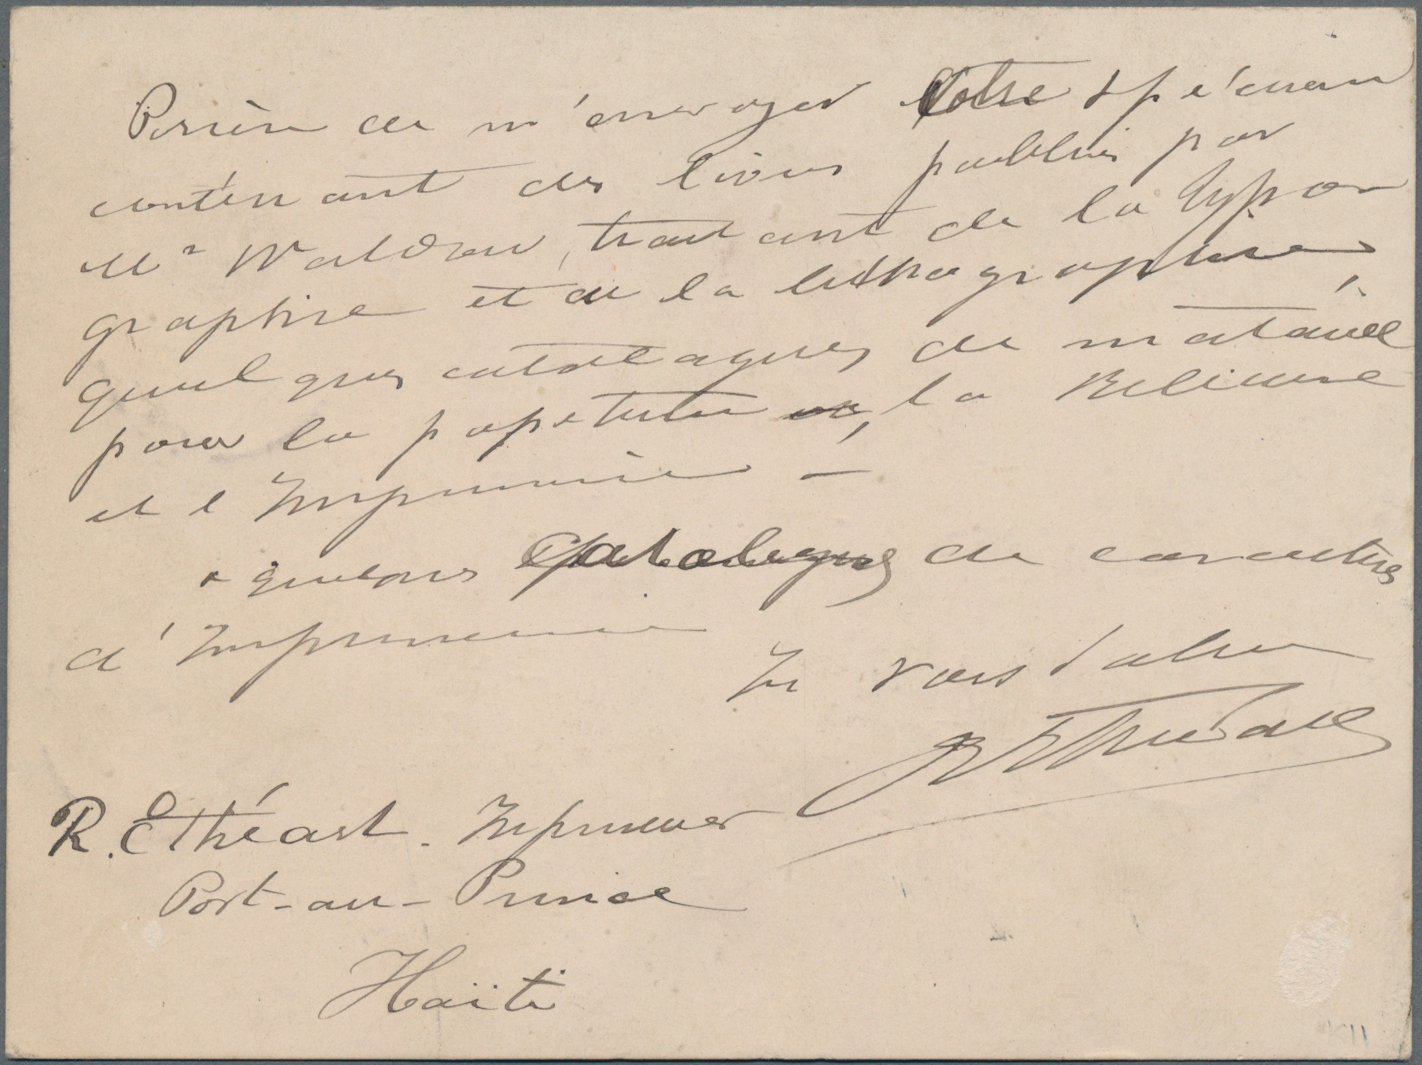 Prière de m'envoyer Votre Spécimen
contenant des livres publiés par
Mr Waldow, traitant de la typo
graphie et de la lithographie,
quelques catalogues de matériel
pour la papeterie, la Reliure
et l'Imprimerie —
& quelques Catalogues de caractères
d'Imprimerie
Je vous salue
R. E. Théart. Imprimeur
Port-au-Prince
Haïti
KII